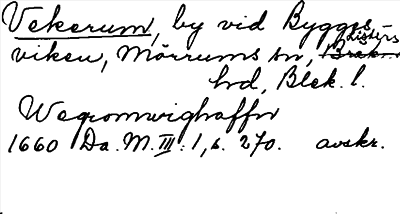 Vekerum, by vid Bygges-
viken, Mörrums sn, Listers
hd, Blek. l.
Wegromwighaffn
1660 Da. M. III: 1, s. 270. avskr.